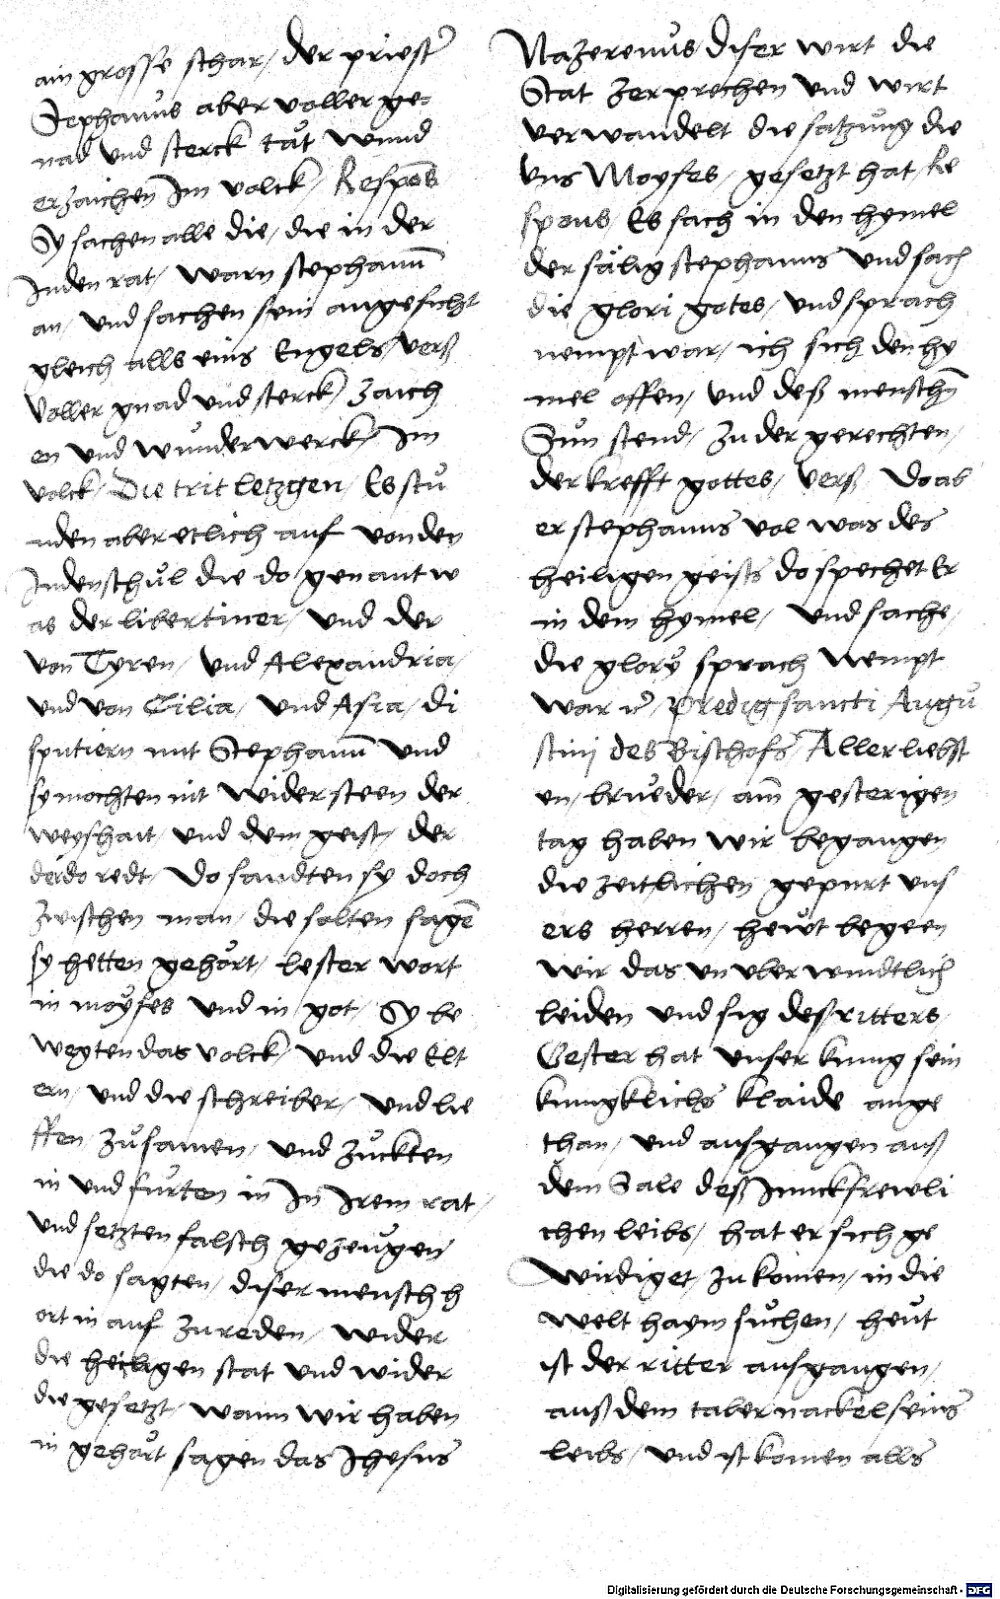 ain grosse schar, der priest̄
Stephanus aber voller ge=
nad und sterck tůt wund
erzaichen Im volck, Respons
Sy sachen alle die, die in der
Juden rat, warn stephanū
an, und sachen sein angesicht
gleich alls eins Engels, verß
voller gnad und sterck, zaich
en und wunderwerck, Im
volck, Die trit letzgen, Es stů
nden aber etlich auf von den
Judenschůl die do genant w
as der libertiner, und der
von Tyren, und Alexandria,
und von Cilia, und Asia, di
sputiern mit Stephanū und
sy mochten nit widersteen der
weyshait, und dem geist, der
der do redt, Do sandten sy doch
zwischen man, die solten sagē
sy hetten gehört, lester wort
in moÿses und in got, Sy be
wegten das volck, und die Elt
ern, und die schreiber, und lie
ffen zůsamen, und zuckten
in und fůrten in In Irem rat,
und setzten falsch gezeugen
die do sagten, diser mensch h
ort in auf zu reden, wider
die heiligen stat und wider
die gesetzt, wann wir haben
in gehört sagen das Jhesus
Nazerenus, diser wirt die
Stat zerprechen und wirt
verwandelt die satzung die
uns Moyses, gesetzt hat, Re
spons Es sach in den hymel
der sälig stephanus und sach
die glori gotes, und sprach
nempt war, ich sich den hy
mel offen, und deß menschn̄
Sůn stend, zu der gerechten,
der krefft gottes, verß Do ab
er stephanus vol was des
heiligen geists do spechet Er
in dem hymel, und sache,
die glorÿ sprach Nempt
war ꝛc̄, Predig sancti Augu
stinj des Bischofs, Aller liebst
en, brueder, am̄ gesterigen
tag haben wir begangen
die zeitlichen gepurt uns
ers herren, hewt begeen
wir das unuberwindtlich
leiden und sig deß ritters,
Gester hat unser kung sein
kungklichs klaide ange
than, und ausgangen auß
dem Sale deß Junckfrewli
chen leibs, hat er sich ge
wirdiget, zu komen, in die
welt haym suchen, heut
ist der ritter ausgangen,
auß dem tabernackel seins
leibs, und ist komen alls
Digitalisierung gefördert durch die Deutsche Forschungsgemeinschaft - DFG